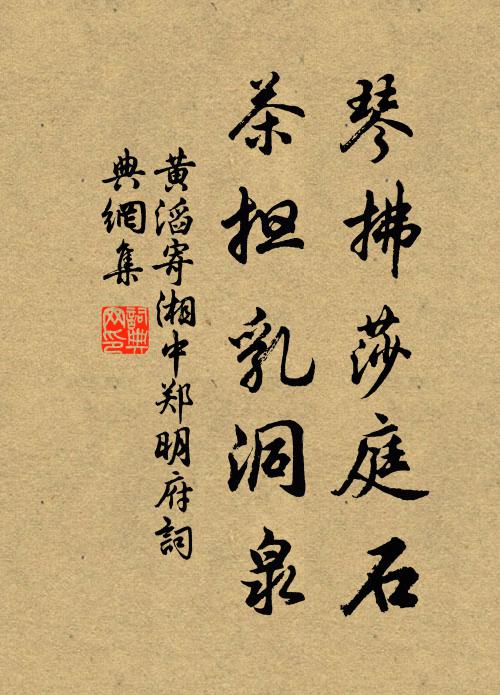 琴拂莎庭石
茶担乳洞泉
黄滔寄湘中郑明府詞
典網集
詞典网印